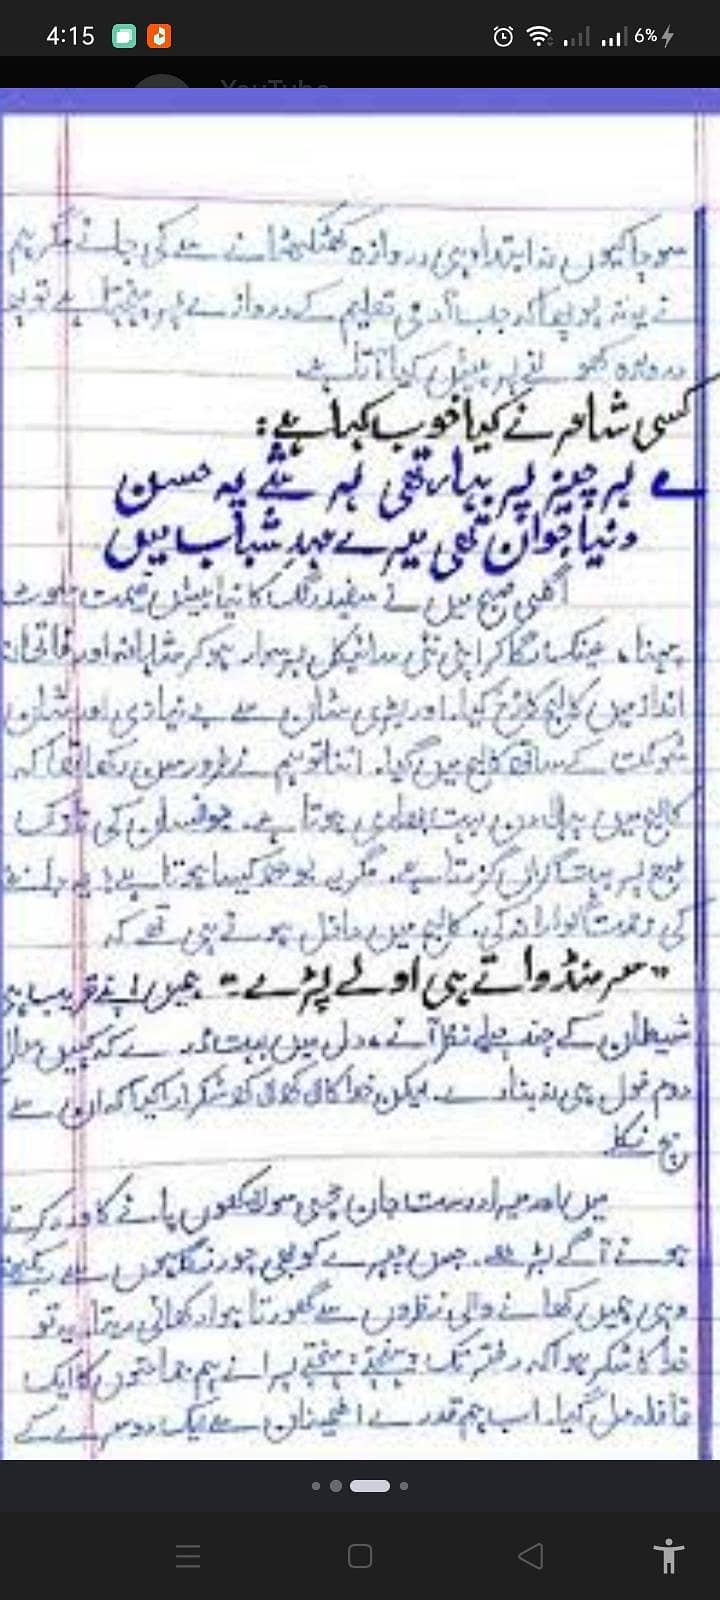 4:15
6%
YouTube
سوچا کیوں نہ ابتداء ہی دروازہ کھٹکھٹانے سے کی جائے مگر ہم
نے یہ نہ سوچا کہ جب آدمی تعلیم کے دروازے پر پہنچتا ہے تو
دروازہ کھولنے پر پیش کیا آتا ہے
کسی شاعر نے کیا خوب کہا ہے:
ہر چیز پر بہار تھی ہر شے پہ حسن
دنیا جوان تھی میرے عہدِ شباب میں
اگلی صبح میں نے سفید رنگ کا نیا بیش قیمت سوٹ
پہنا، عینک لگا کر اپنی نئی سائیکل پر سوار ہو کر شاہانہ اور فاتحانہ
انداز میں کالج کا رخ کیا۔ اور بڑی شان سے بے نیازی اور شان
شوکت کے ساتھ کالج میں گیا۔ اتنا تو ہم نے ضرور سن رکھا تھا کہ
کالج میں پہلا دن بہت بھاری ہوتا ہے۔ جو انسان کی نازک
طبع پر بہت گراں گزرتا ہے۔ مگر یہ بوجھ کیسا ہوتا ہے؟ یہ جاننے
کی زحمت گوارا نہ کی۔ کالج میں داخل ہوتے ہی تھے کہ
"سر منڈواتے ہی اولے پڑے۔" ہمیں اپنے قریب ہی
شیطان کے چند چیلے نظر آئے، دل میں بہت ڈرے کہ کہیں ہمارا
دوم فول ہی نہ بنا دے۔ لیکن خدا کا لاکھ لاکھ شکر ادا کیا کہ ان سے
بچ نکلا
میں اور میرا دوست جان بچی سو لاکھوں پائے کا ورد کرتے
ہوئے آگے بڑھے۔ جس چہرے کو بھی چور نگاہوں سے دیکھتے
وہی ہمیں کھانے والی نظروں سے گھورتا ہوا دکھائی دیتا۔ یہ تو
خدا کا شکر ہوا کہ دفتر تک پہنچتے پہنچتے پرانے ہم جماعتوں کا ایک
قافلہ مل گیا۔ اب ہم قدرے اطمینان سے ایک دوسرے کے